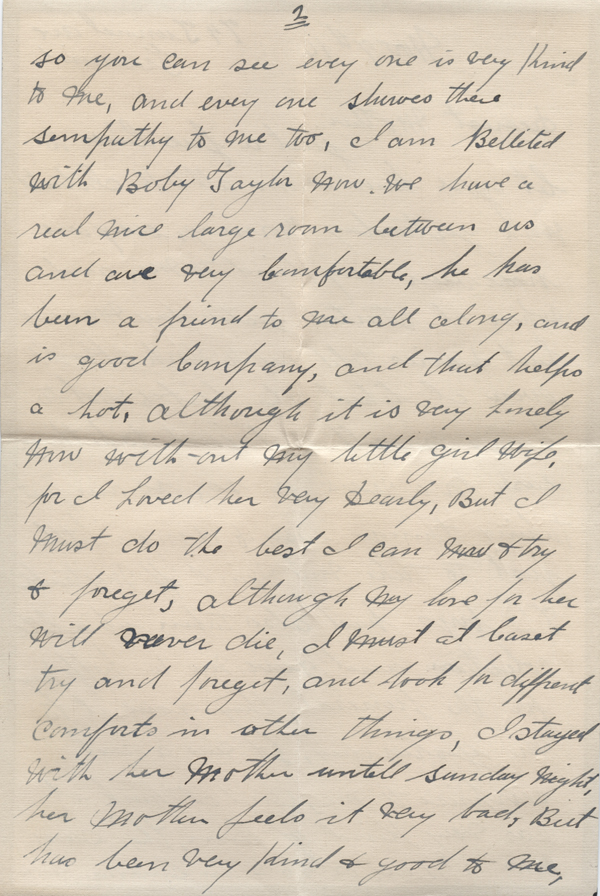 2
so you can see evey one is very Kind
to Me, and every one showes there
sempathy to Me too, I am Belleted
with Boby Taylor Now. We have a
real nice large room between us
and are very Comfortable, he has
been a friend to me all along, and
is good Company, and that helps
a Lot, although it is very Lonely
Now with-out my little girl Wife,
for I Loved her very Dearly, But I
Must do the best I can Now & try
& foreget, although My love for her
will never die, I Must at least
try and foreget, and look for different
Comforts in other things, I stayed
with her Mother untill Sunday Night,
her Mother feels it very bad, But
has been very Kind & good to Me,